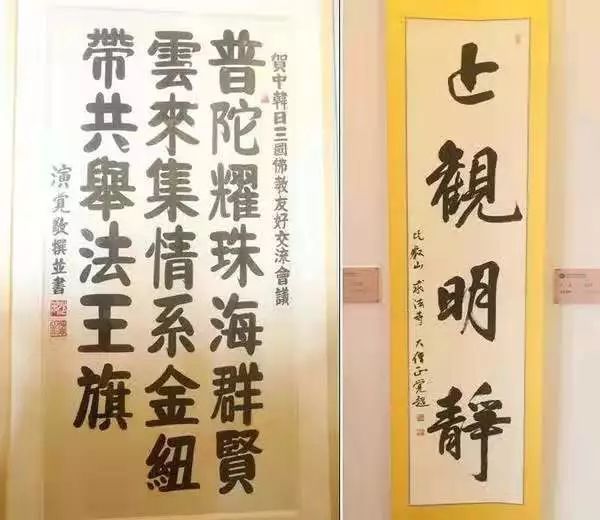 賀中韓日三國佛教友好交流會議
普陀耀珠海群賢
雲來集情系金紐
帶共舉法王旗
演覺敬撰並書
止観明靜
比叡山 求法寺 大僧正覚超